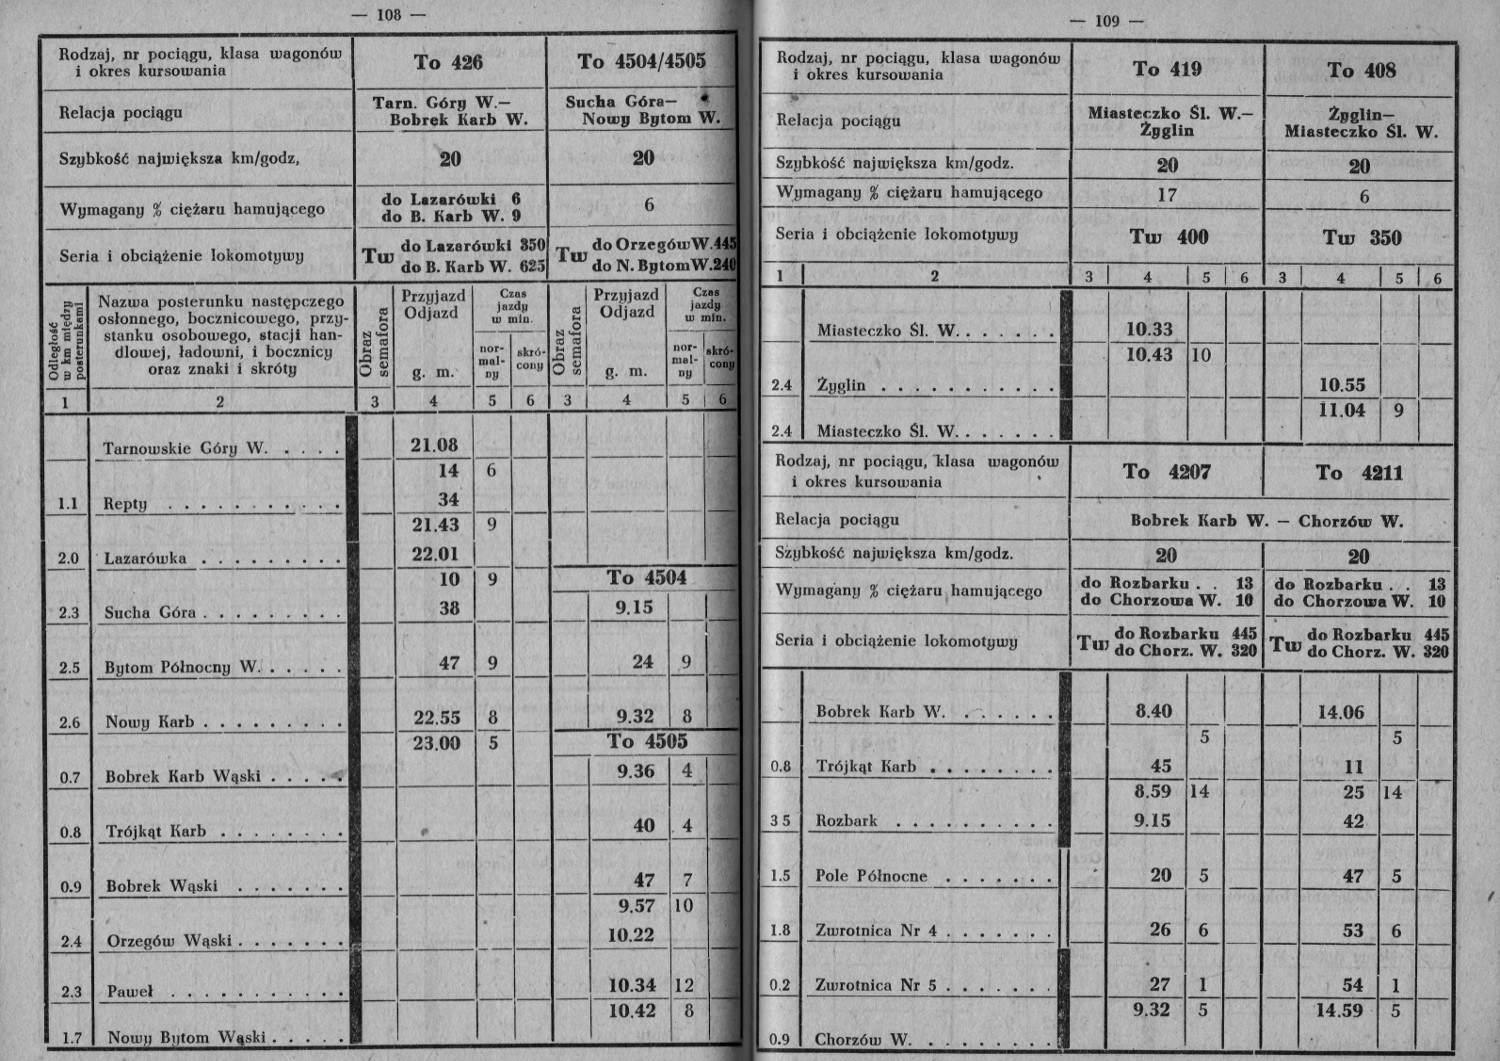 — 108 —
Rodzaj, nr pociągu, klasa wagonów
i okres kursowania
To 426
To 4504/4505
Relacja pociągu
Tarn. Góry W.—
Bobrek Karb W.
Sucha Góra—
Nowy Bytom W.
Szybkość największa km/godz,
20
20
Wymagany % ciężaru hamującego
do Lazarówki 6
do B. Karb W. 9
6
Seria i obciążenie lokomotywy
Tw do Lazarówki 350
do B. Karb W. 625
Tw do Orzegów W. 445
do N. Bytom W. 240
Odległość
w km między
posterunkami
Nazwa posterunku następczego
osłonnego, bocznicowego, przy-
stanku osobowego, stacji han-
dlowej, ładowni, i bocznicy
oraz znaki i skróty
Obraz
semafora
Przyjazd
Odjazd
g. m.
Czas
jazdy
w min.
nor-
mal-
ny
skró-
cony
Obraz
semafora
Przyjazd
Odjazd
g. m.
Czas
jazdy
w min.
nor-
mal-
ny
skró-
cony
1 2 3 4 5 6 3 4 5 6
Tarnowskie Góry W. . . . . 21.08
14 6
1.1 Repty . . . . . . . . . . . 34
21.43 9
2.0 Lazarówka . . . . . . . . . 22.01
10 9 To 4504
2.3 Sucha Góra . . . . . . . . . 38 9.15
2.5 Bytom Północny W. . . . . . 47 9 24 9
2.6 Nowy Karb . . . . . . . . . 22.55 8 9.32 8
23.00 5 To 4505
0.7 Bobrek Karb Wąski . . . . . 9.36 4
0.8 Trójkąt Karb . . . . . . . . 40 4
0.9 Bobrek Wąski . . . . . . . 47 7
9.57 10
2.4 Orzegów Wąski . . . . . . . 10.22
2.3 Paweł . . . . . . . . . . . 10.34 12
10.42 8
1.7 Nowy Bytom Wąski . . . . .
— 109 —
Rodzaj, nr pociągu, klasa wagonów
i okres kursowania
To 419
To 408
Relacja pociągu
Miasteczko Śl. W.—
Żyglin
Żyglin—
Miasteczko Śl. W.
Szybkość największa km/godz.
20
20
Wymagany % ciężaru hamującego
17
6
Seria i obciążenie lokomotywy
Tw 400
Tw 350
1 2 3 4 5 6 3 4 5 6
Miasteczko Śl. W. . . . . . . 10.33
10.43 10
2.4 Żyglin . . . . . . . . . . . 10.55
11.04 9
2.4 Miasteczko Śl. W. . . . . . .
Rodzaj, nr pociągu, klasa wagonów
i okres kursowania
To 4207
To 4211
Relacja pociągu
Bobrek Karb W. — Chorzów W.
Szybkość największa km/godz.
20
20
Wymagany % ciężaru hamującego
do Rozbarku . . 13
do Chorzowa W. 10
do Rozbarku . . 13
do Chorzowa W. 10
Seria i obciążenie lokomotywy
Tw do Rozbarku 445
do Chorz. W. 320
Tw do Rozbarku 445
do Chorz. W. 320
Bobrek Karb W. . . . . . . 8.40 14.06
5 5
0.8 Trójkąt Karb . . . . . . . . 45 11
8.59 14 25 14
3 5 Rozbark . . . . . . . . . . 9.15 42
1.5 Pole Północne . . . . . . . 20 5 47 5
1.8 Zwrotnica Nr 4 . . . . . . . 26 6 53 6
0.2 Zwrotnica Nr 5 . . . . . . . 27 1 54 1
9.32 5 14.59 5
0.9 Chorzów W. . . . . . . . .